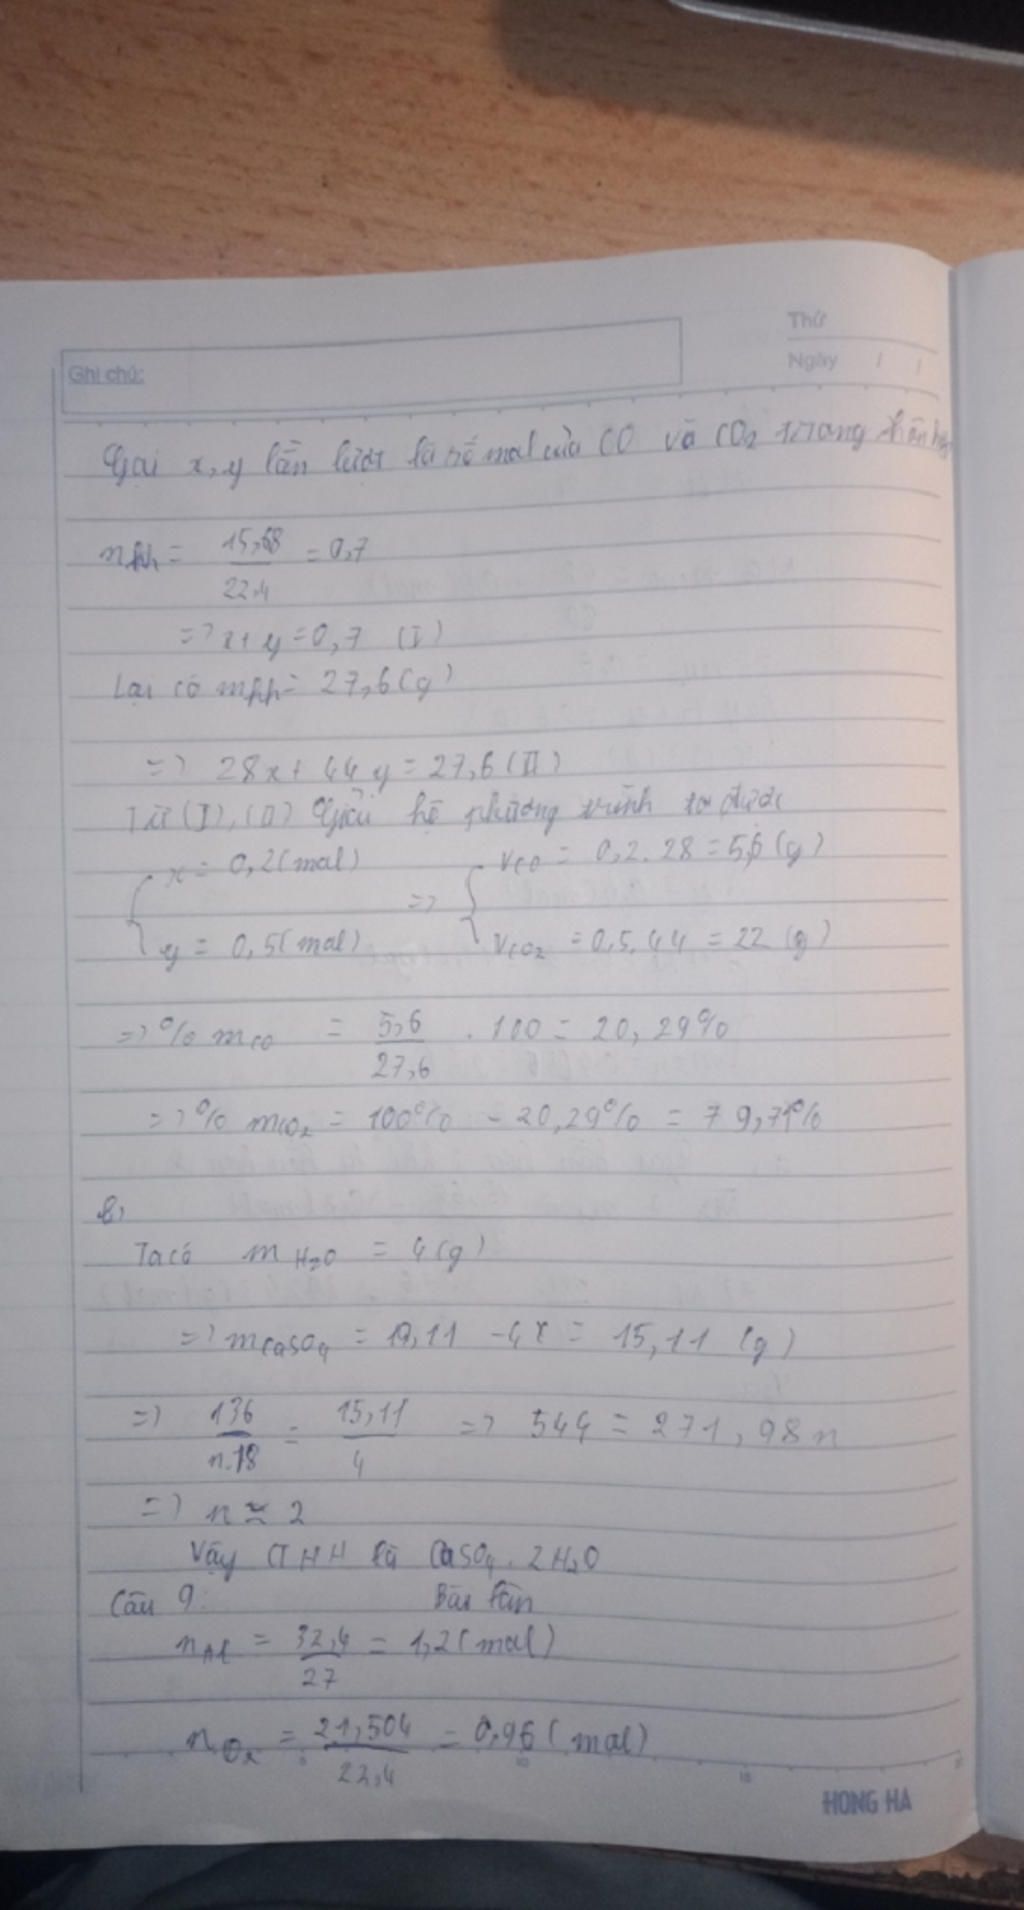 Thứ
Ngày / /
Ghi chú:
Gọi x, y lần lượt là số mol của CO và CO2 trong hỗn hợp
nhh = 15,68 / 22,4 = 0,7
=> x + y = 0,7 (I)
Lại có mhh = 27,6 (g)
=> 28x + 44y = 27,6 (II)
Từ (I), (II) Giải hệ phương trình ta được
{ x = 0,2 (mol) => { VCO = 0,2.28 = 5,6 (g)
y = 0,5 (mol) VCO2 = 0,5.44 = 22 (g)
=> % mCO = 5,6 / 27,6 . 100 = 20,29%
=> % mCO2 = 100% - 20,29% = 79,71%
b,
Ta có mH2O = 4 (g)
=> mCaSO4 = 19,11 - 4 = 15,11 (g)
=> 136 / n.18 = 15,11 / 4 => 544 = 271,98n
=> n ≈ 2
Vậy CTHH là CaSO4.2H2O
Câu 9: Bài làm
nAl = 32,4 / 27 = 1,2 (mol)
nO2 = 21,504 / 22,4 = 0,96 (mol)
5 10 15
HONG HA